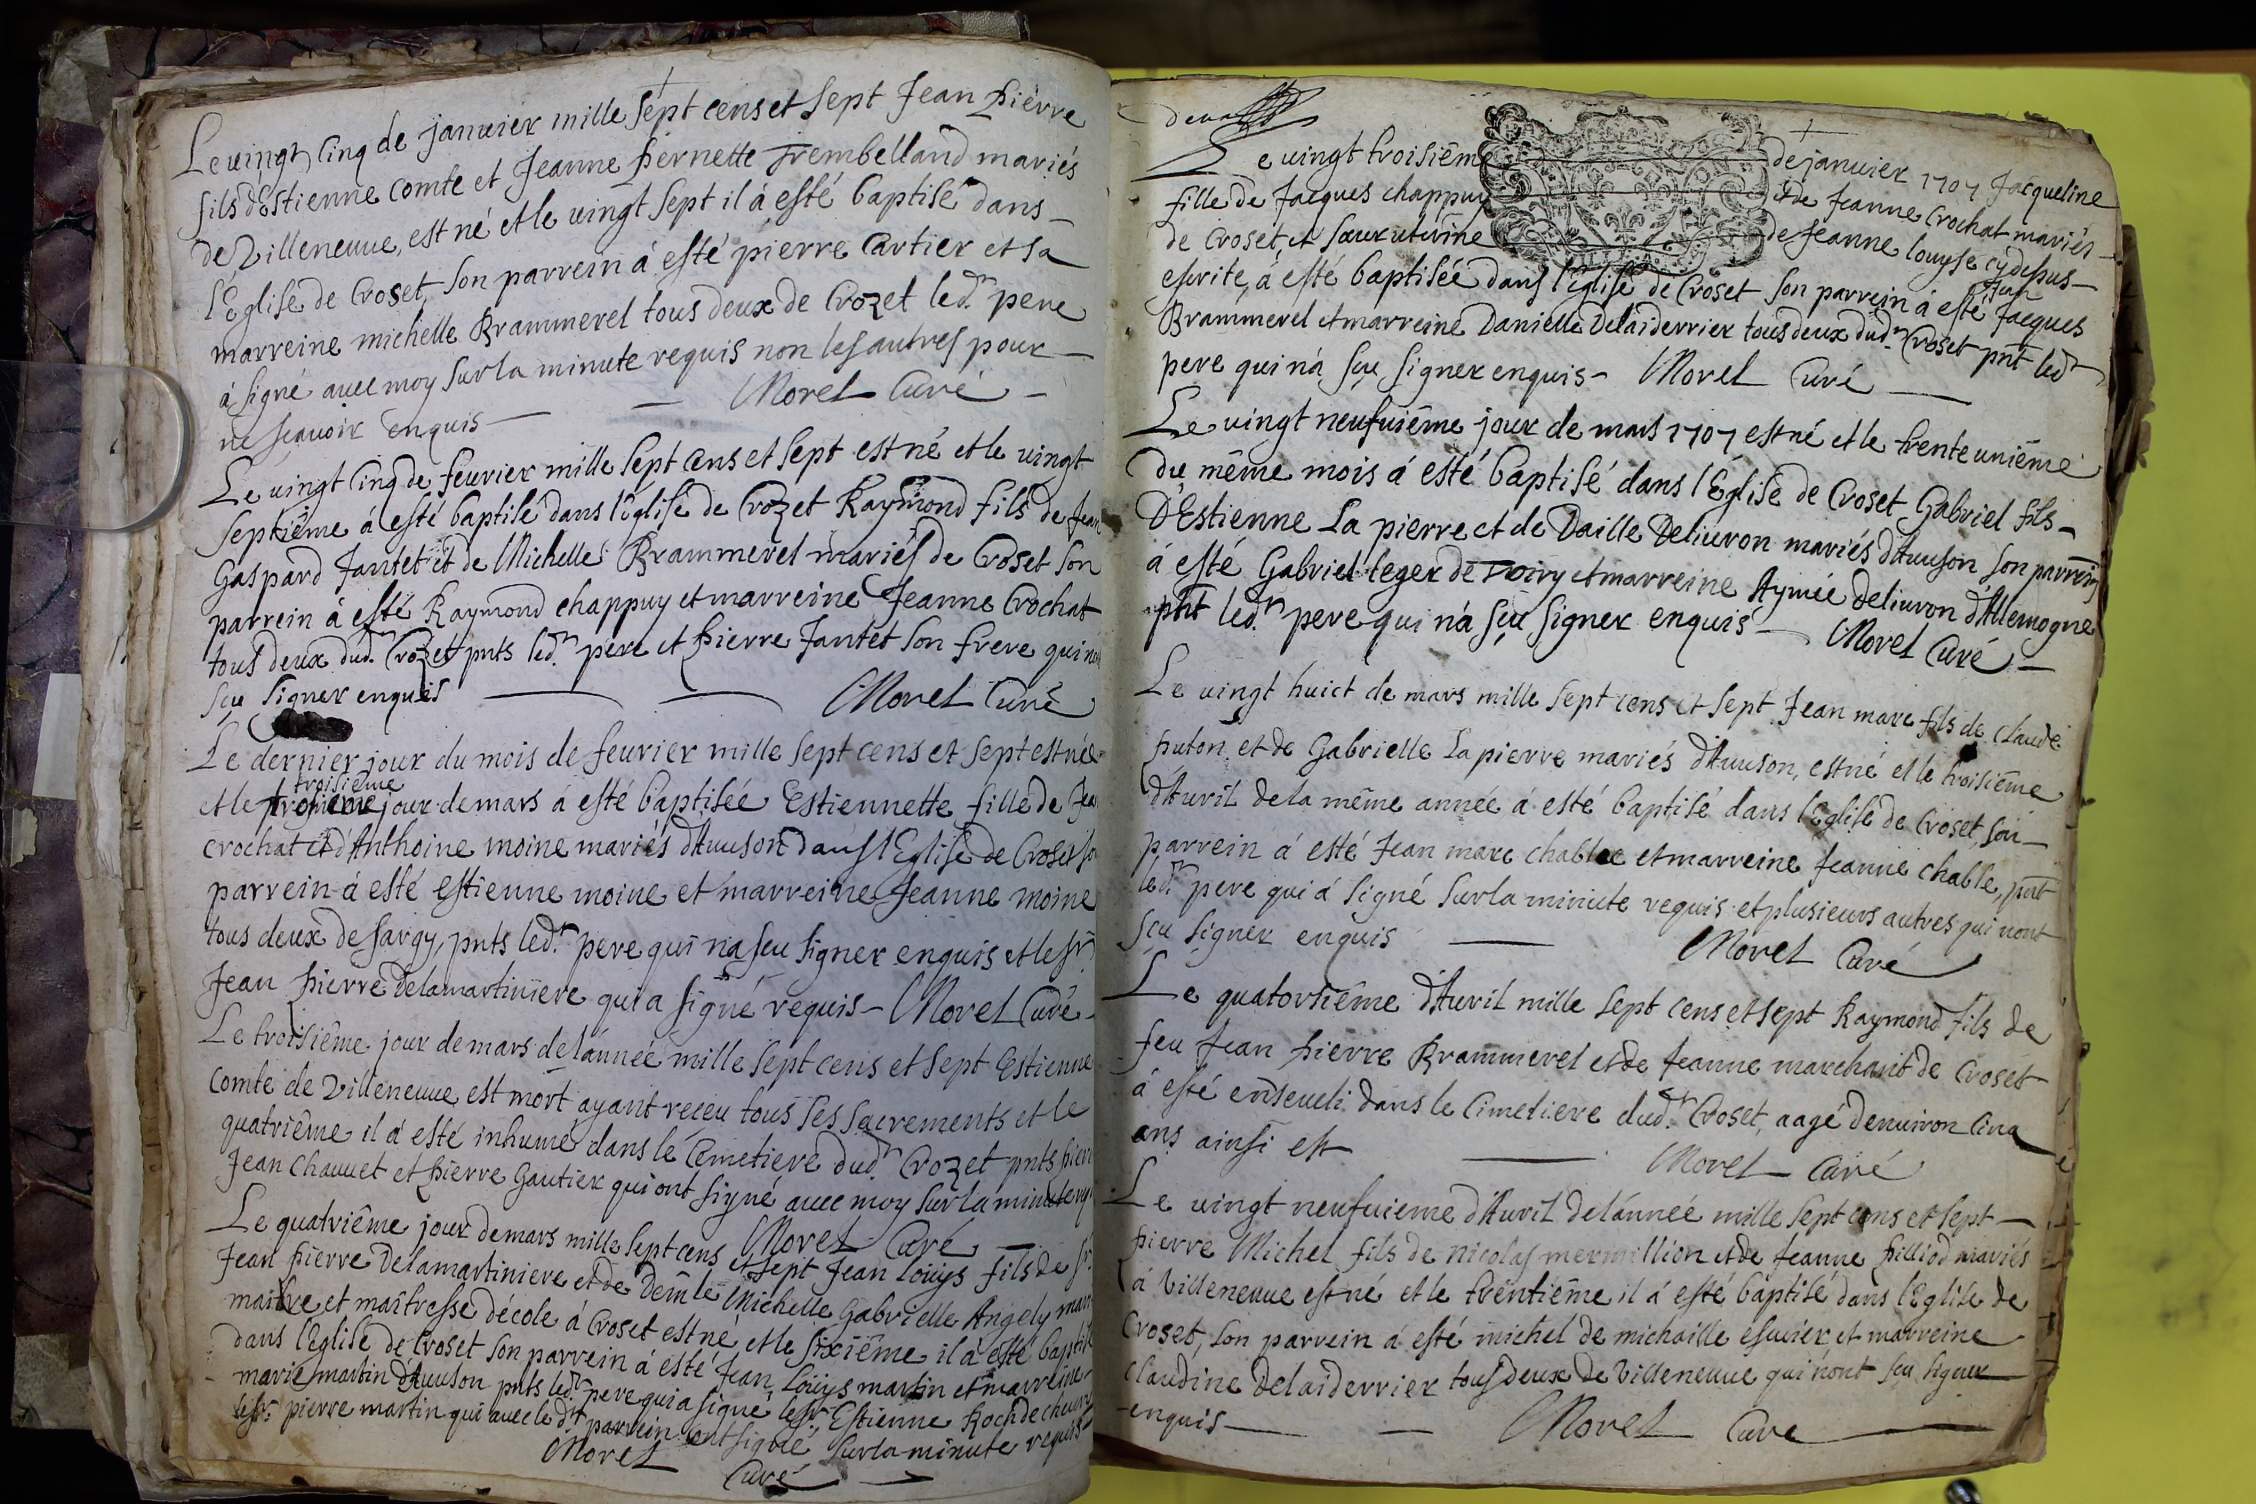 Le vingt cinq de januier mille sept cens et sept Jean pierre
fils d'Estienne Comte et Jeanne pernette frembelland mariés
de Villeneuue, est né et le vingt sept il à esté baptisé dans
l'Eglise de Croset, son parrein à esté pierre Cartier et sa
marreine michelle Brammerel tous deux de Crozet led.t pere
à signé auec moy sur la minute requis non les autres pour
ne sçauoir enquis Morel Curé
Le vingt cinq de feurier mille sept cens et sept est né et le vingt
septiême à esté baptisé dans l'Eglise de Crozet Raymond fils de Jean
Gaspard Jantet et de Michelle Brammerel mariés de Croset son
parrein à esté Raymond chappuy et marreine Jeanne Crochat
tous deux dud.t Crozet pnts led.t pere et pierre Jantet son frere qui
sçu signer enquis Morel Curé
Le dernier jour du mois de feurier mille sept cens et sept est née
troisiême
et le jour de mars à esté baptisée Estiennette fille de
crochat et d'Anthoine moine mariés d'Auuson dans l'Eglise de Croset
parrein à esté estienne moine et marreine Jeanne moine
tous deux de sargy, pnts led.t pere qui n'a sçu signer enquis et le sr.
Jean pierre Delamartiniere qui a signé requis Morel Curé
Le troisiême jour de mars de l'année mille sept cens et sept Estienne
Comte de Villeneuue est mort ayant receu tous ses sacrements et le
quatriême il à esté inhumé dans le Cemetiere dud.t Crozet pnts
Jean Chauuet et pierre Gautier qui ont signé auec moy sur la minute
Morel Curé
Le quatriême jour de mars mille sept cens et sept Jean loüys fils de sr.
Jean pierre Delamartiniere et de Demle Michelle Gabrielle Angely
maître et maîtresse décole à Croset est né, et le sixiême il à esté
dans l'Eglise de Croset son parrein à esté Jean Loüys martin et marreine
marie martin d'Auuson pnts led.t pere qui a signé le sr. Estienne Roch
le sr. pierre martin qui auec le dt. parrein ont signé sur la minute requis
Morel
Curé
Le vingt troisiême de januier 1707 Jacqueline
fille de Jacques chappuy & de Jeanne Crochat mariés
de Croset, et sœur uterine de Jeanne louyse cy dessus
escrite, à esté baptisée dans l'Eglise de Croset son parrein à esté Jacques
Jean
Brammerel et marreine Danielle Delaiderrier tous deux dud.t Croset pnt led.t
pere qui n'à sçu signer enquis Morel Curé
Le vingt neufuiême jour de mars 1707 est né et le trente uniême
du même mois à esté baptisé dans l'Eglise de Croset Gabriel fils
D'Estienne La pierre et de Daille Deliuron mariés d'Auuson son parrein
à esté Gabriel leger de Toiry et marreine Aymée deliuron d'Allemogne
pnt led.t pere qui n'à sçu signer enquis Morel Curé
Le vingt huict de mars mille sept cens et sept Jean marc fils de Claude
puton et de Gabrielle La pierre mariés d'Auuson, est né et le troisiême
d'Auril de la même année à esté baptisé dans l'Eglise de Croset, son
parrein à esté Jean marc chable et marreine Jeanne chable, pnt
led.t pere qui à signé sur la minute requis et plusieurs autres qui n'ont
sçu signer enquis Morel Curé
Le quatorsiême d'Auril mille sept cens et sept Raymond fils de
feu Jean pierre Brammerel et de Jeanne marchant de Croset
à esté enseueli dans le Cimetiere dud.t Croset, aagé d'enuiron cinq
ans ainsi est Morel Curé
Le vingt neufuieme d'Auril de l'année mille sept cens et sept
pierre Michel fils de nicolas mermillion et de Jeanne pilliod mariés
à Villeneuue est né et le trentiême il à esté baptisé dans l'Eglise de
Croset, son parrein à esté michel de michaille escuier et marreine
Claudine Delaiderrier tous deux de Villeneuue qui n'ont sçu signer
enquis Morel Curé